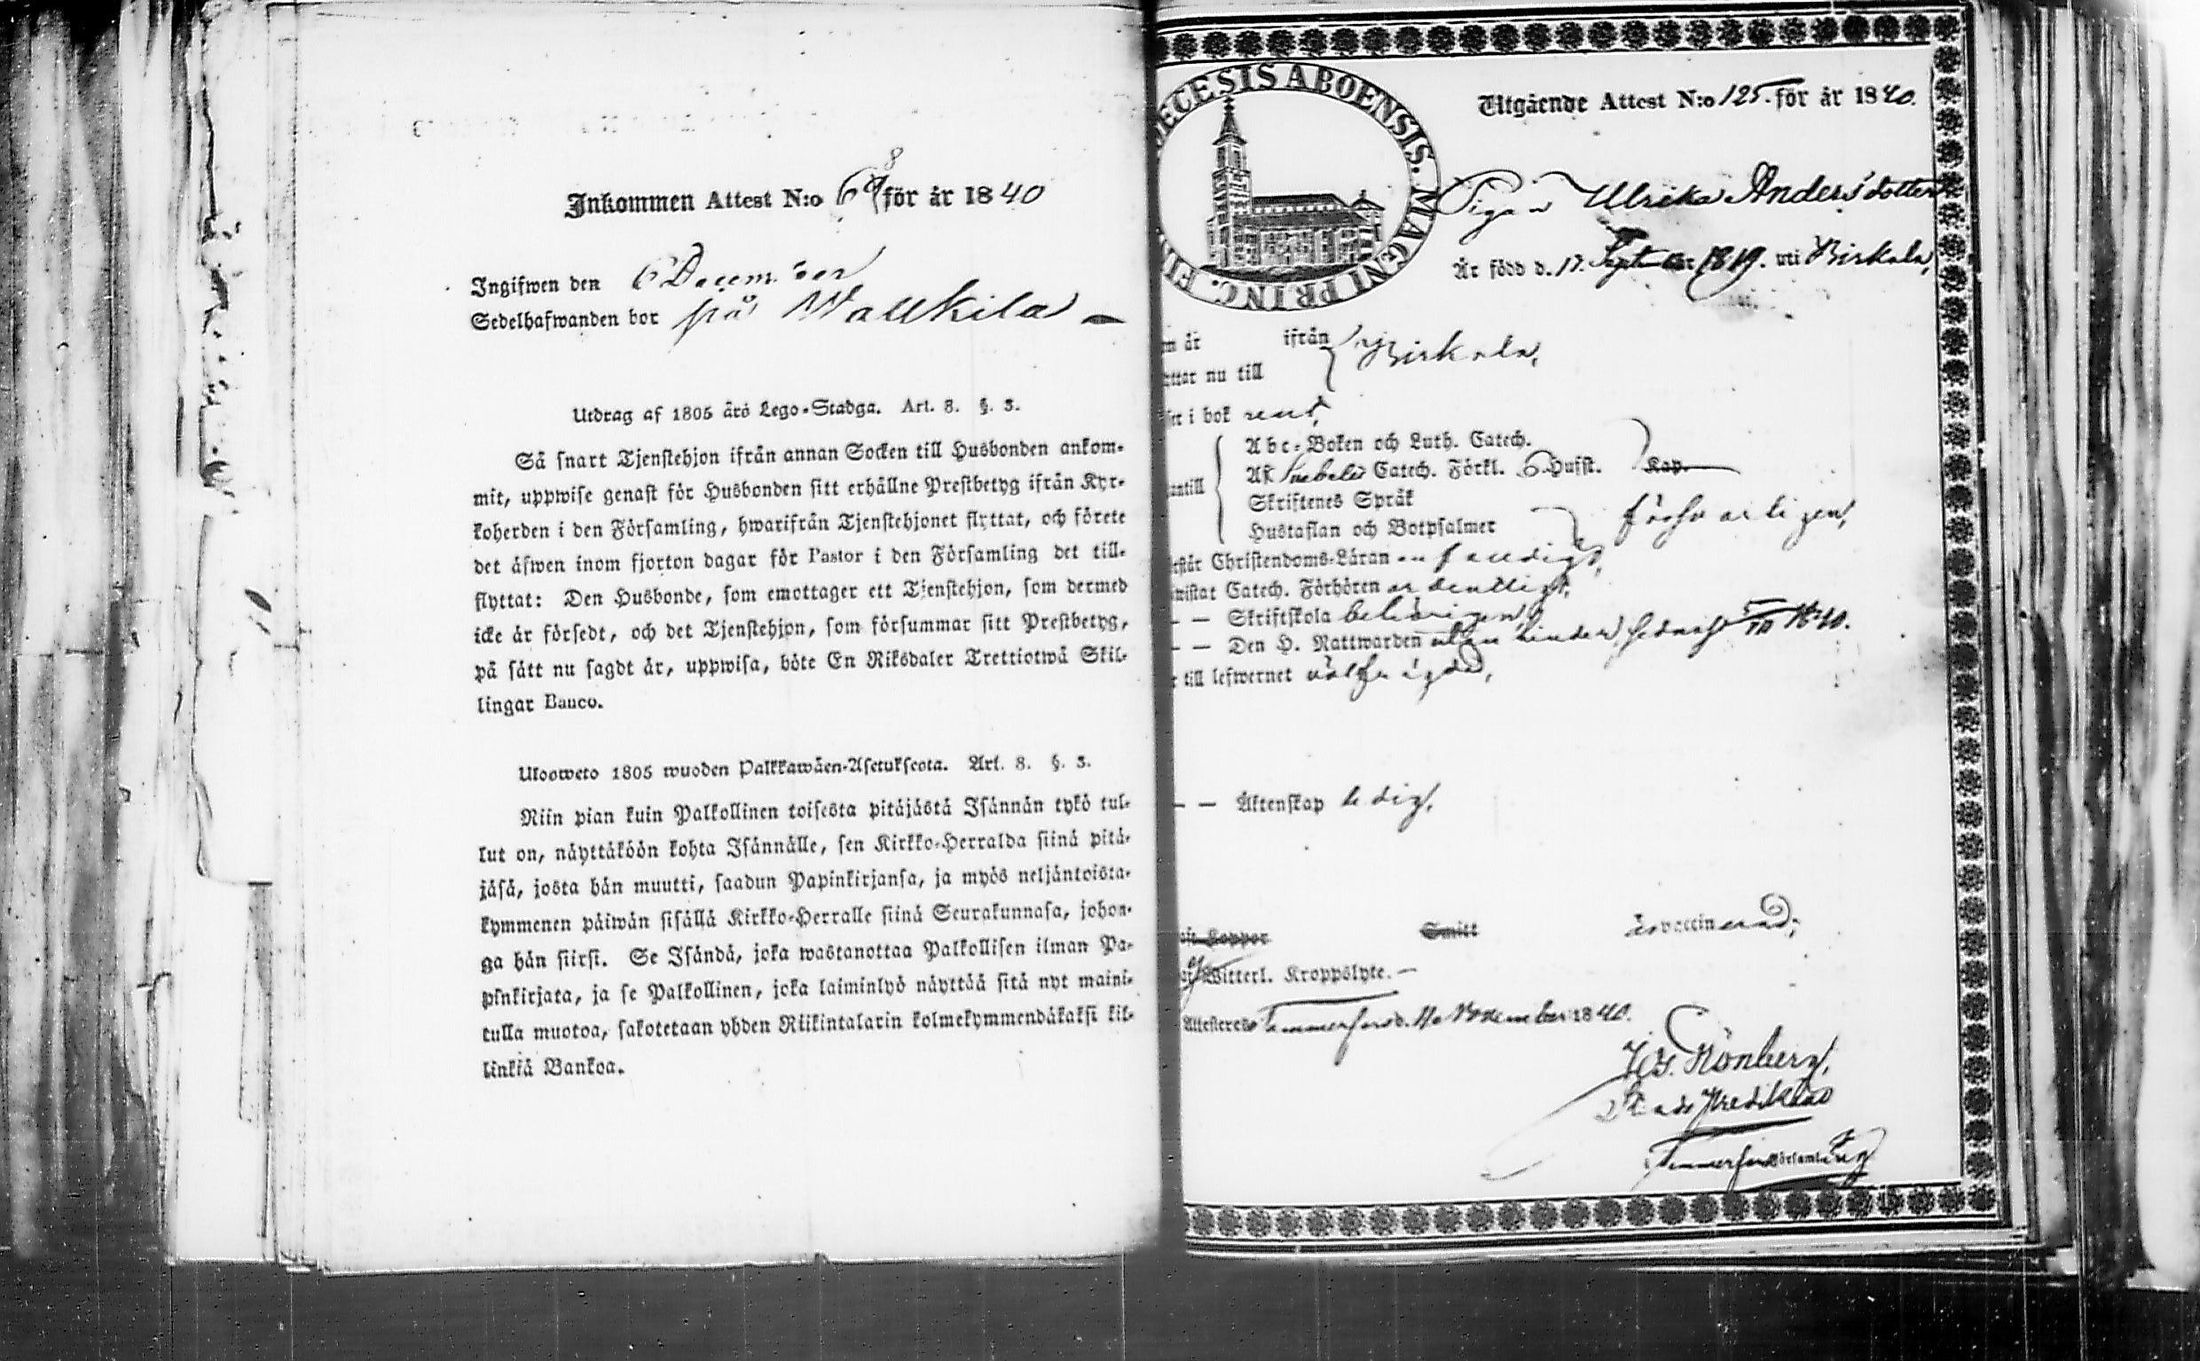 Inkommen Attest N:o 68 för år 1840
Ingifwen den 6 December
Sedelhafwanden bor på Wallkila
Utdrag af 1805 års Lego-Stadga. Art. 8. §. 3.
Så snart Tjenstehjon ifrån annan Socken till Husbonden ankom-
mit, uppwise genast för Husbonden sitt erhållne Prestbetyg ifrån Kyr-
koherden i den Församling, hwarifrån Tjenstehjonet flyttat, och förete
det äfwen inom fjorton dagar för Pastor i den Församling det till-
flyttat: Den Husbonde, som emottager ett Tjenstehjon, som dermed
icke är försedt, och det Tjenstehjon, som försummar sitt Prestbetyg,
på sätt nu sagdt är, uppwisa, böte En Riksdaler Trettiotwå Skil-
lingar Banco.
Ulosweto 1805 wuoden Palkkawäen-Asetuksesta. Art. 8. §. 3.
Niin pian kuin Palkollinen toisesta pitäjästä Isännän tykö tul-
lut on, näyttäköön kohta Isännälle, sen Kirkko-Herralda siinä pitä-
jäsä, josta hän muutti, saadun Papinkirjansa, ja myös neljäntoista-
kymmenen päiwän sisällä Kirkko-Herralle siinä Seurakunnasa, johon-
ga hän siirsi. Se Isändä, joka wastanottaa Palkollisen ilman Pa-
pinkirjata, ja se Palkollinen, joka laiminlyö näyttää sitä nyt maini-
tulla muotoa, sakotetaan yhden Riikintalarin kolmekymmendäkaksi kil-
linkiä Bankoa.
ECESIS ABOENSIS. MAGNI PRINC. FI
Utgående Attest N:o 125 för år 1840.
Pigan Ulrika Andersdotter
Är född d. 17. September 1819. uti Birkala,
m år ifrån
ttar nu till Birkala,
ser i bok rent,
antill Abc-Boken och Luth. Catech.
Af Svebelii Catech. Förkl. 6 Hufst. Kap.
Skriftenes Språk
Hustaflan och Botpsalmer försvarligen,
rstår Christendoms-Läran enfaldigt,
wistat Catech. Förhören ordentligt,
— — Skriftskola behörigen,
— — Den H. Nattwarden utan hinder, sednast 1840.
r till lefwernet välfrägdad,
— — Äktenskap ledig,
aft Koppor Smitt är vaccinerad,
ej Witterl. Kroppslyte. —
Attesteres Tammerfors d. 11 November 1840.
Rönberg,
Stads Predikant
Tammerfors Församling